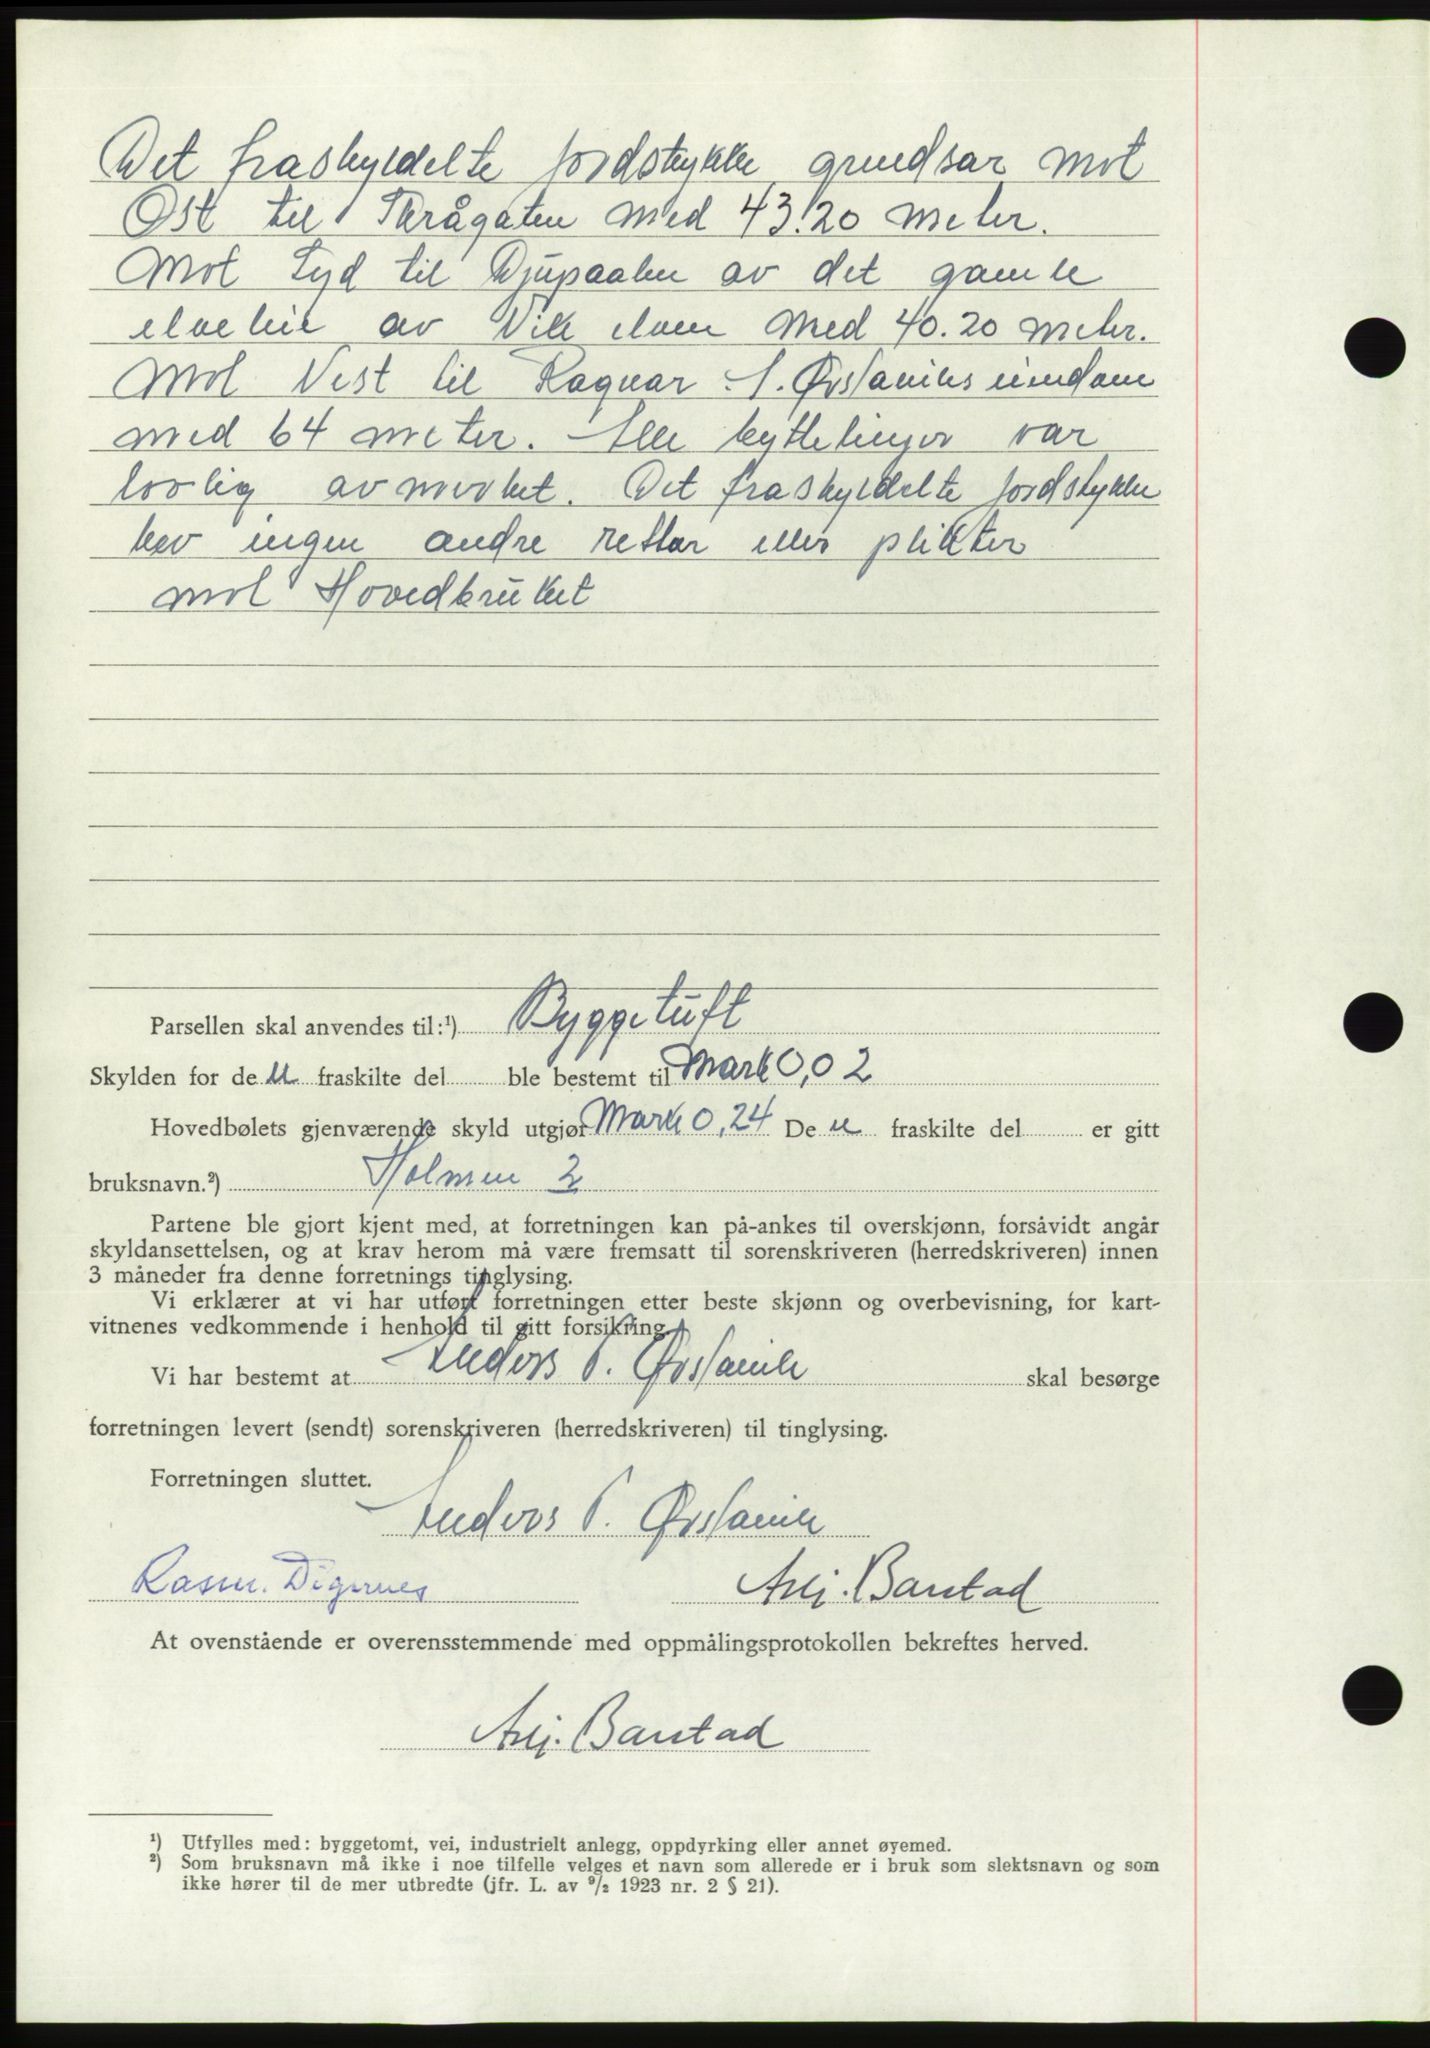 Det fraskyldelte jordstykke grendsar mot
Øst til Tkrågaten med 43.20 meter.
Mot Syd til Djupaalen av det gamle
elveleie av Vik elven med 40.20 meter.
Mot Vest til Ragnar A. Ørstaviks eiendom
med 64 meter. Alle byttelinjer var
lovlig avmerket. Det fraskyldelte jordstykke
hev ingen andre rettar eller plikter
mot Hovedbruket
Parsellen skal anvendes til:¹) Byggetuft
Skylden for den fraskilte del ble bestemt til Mark 0,02
Hovedbølets gjenværende skyld utgjør Mark 0,24 Den fraskilte del er gitt
bruksnavn.²) Holmen 2
Partene ble gjort kjent med, at forretningen kan på-ankes til overskjønn, forsåvidt angår
skyldansettelsen, og at krav herom må være fremsatt til sorenskriveren (herredskriveren) innen
3 måneder fra denne forretnings tinglysing.
Vi erklærer at vi har utført forretningen etter beste skjønn og overbevisning, for kart-
vitnenes vedkommende i henhold til gitt forsikring.
Vi har bestemt at Anders P. Ørstavik skal besørge
forretningen levert (sendt) sorenskriveren (herredskriveren) til tinglysing.
Forretningen sluttet.
Anders P. Ørstavik
Rasm. Digernes Asbj. Barstad
At ovenstående er overensstemmende med oppmålingsprotokollen bekreftes herved.
Asbj. Barstad
¹) Utfylles med: byggetomt, vei, industrielt anlegg, oppdyrking eller annet øyemed.
²) Som bruksnavn må ikke i noe tilfelle velges et navn som allerede er i bruk som slektsnavn og som
ikke hører til de mer utbredte (jfr. L. av ⁹/₂ 1923 nr. 2 § 21).